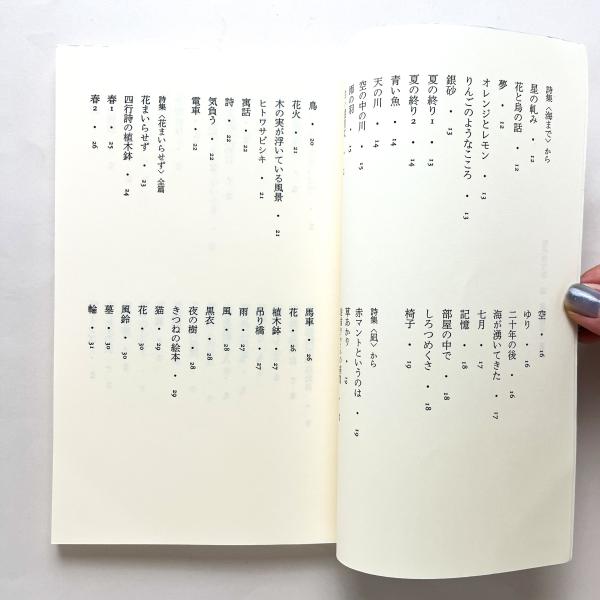 詩集〈海まで〉から
星の軋み・12
花と鳥の話・12
夢・12
オレンジとレモン・13
りんごのようなこころ・13
銀砂・13
夏の終り1・14
夏の終り2・14
青い魚・14
天の川・14
空の中の川・15
空・16
ゆり・16
二十年の後・16
海が湧いてきた・17
七月・17
記憶・18
部屋の中で・18
しろつめくさ・18
椅子・19
詩集〈凪〉から
赤マントというのは・19
草あかり・19
鳥・20
花火・21
木の実が浮いている風景・21
ヒトワサビシキ・21
寓話・22
詩・22
気負う・22
電車・22
詩集〈花まいらせず〉全篇
花まいらせず・23
四行詩の植木鉢・24
春1・25
春2・26
馬車・26
花・26
植木鉢・27
吊り橋・27
雨・27
風・28
黒衣・28
夜の樹・28
きつねの絵本・29
猫・29
花・30
風鈴・30
墓・30
輪・31